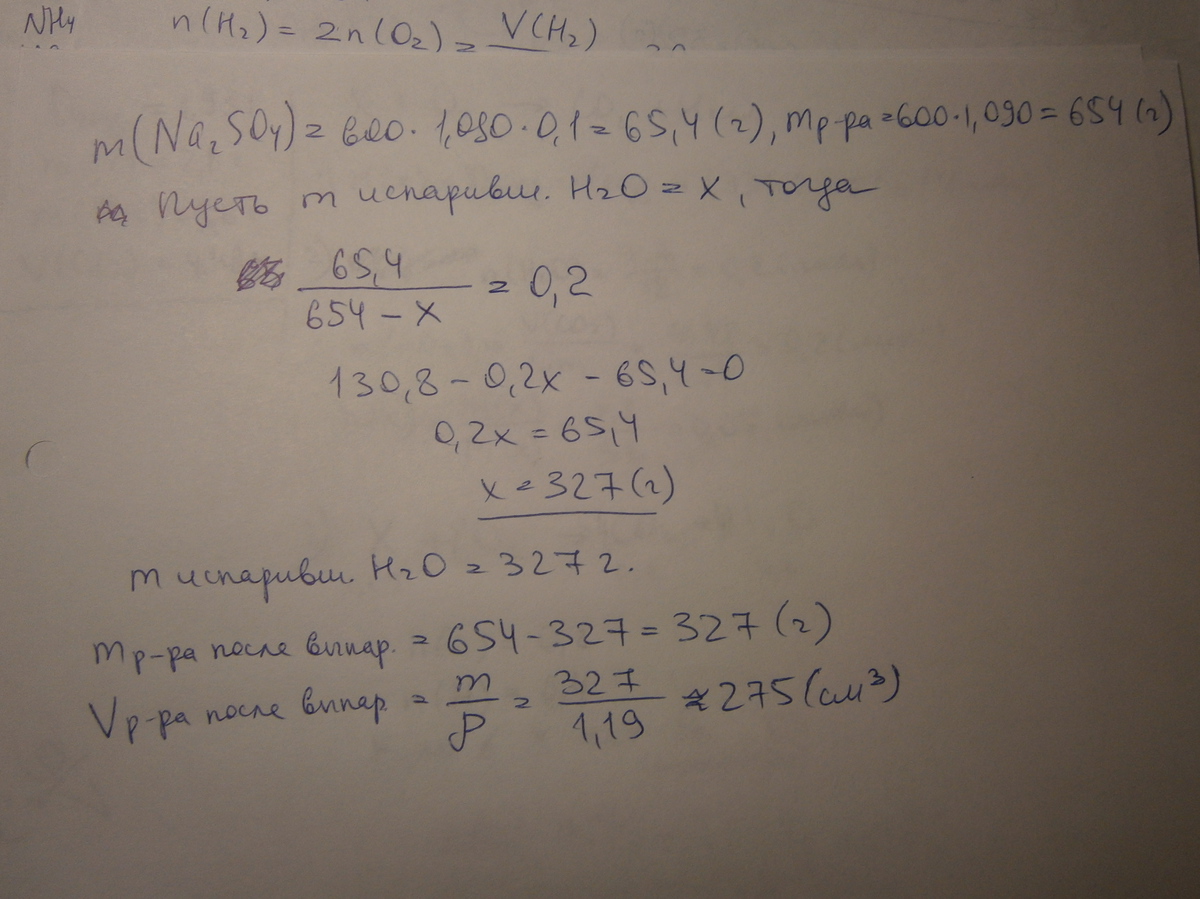 NH4 n(H2) = 2n(O2) = V(H2)
m(Na2SO4) = 600 · 1,090 · 0,1 = 65,4 (г), mр-ра = 600 · 1,090 = 654 (г)
Пусть m испаривш. H2O = x, тогда
65,4 / 654 – x = 0,2
130,8 – 0,2x – 65,4 = 0
0,2x = 65,4
x = 327 (г)
m испаривш. H2O = 327 г.
mр-ра после выпар. = 654 – 327 = 327 (г)
Vр-ра после выпар. = m / ρ = 327 / 1,19 ≈ 275 (см³)